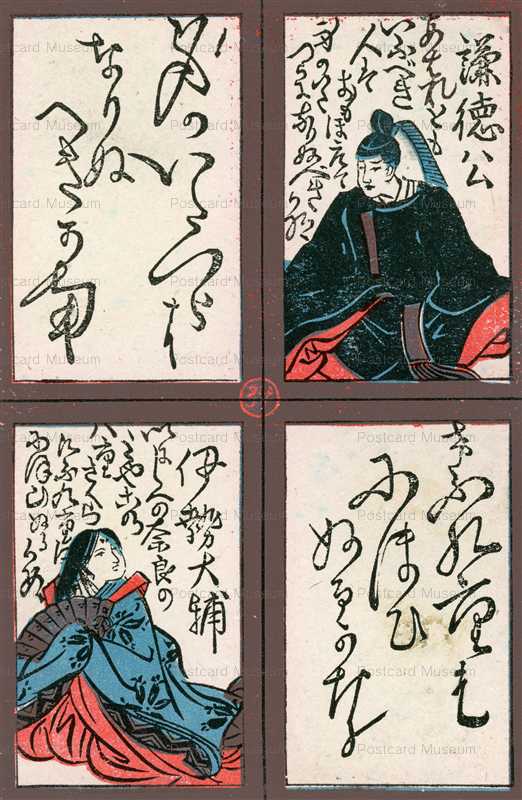 謙徳公
あはれとも
いふべき
人は
おもほえて
身のいた
つらになりぬべき
かな
身のいたつらに
なりぬ
べきかな
けふ九重に
にほひ
ぬるかな
伊勢大輔
いにしへの奈良の
みやこの
八重さくら
けふ九重に
にほひぬる
かな
Postcard Museum